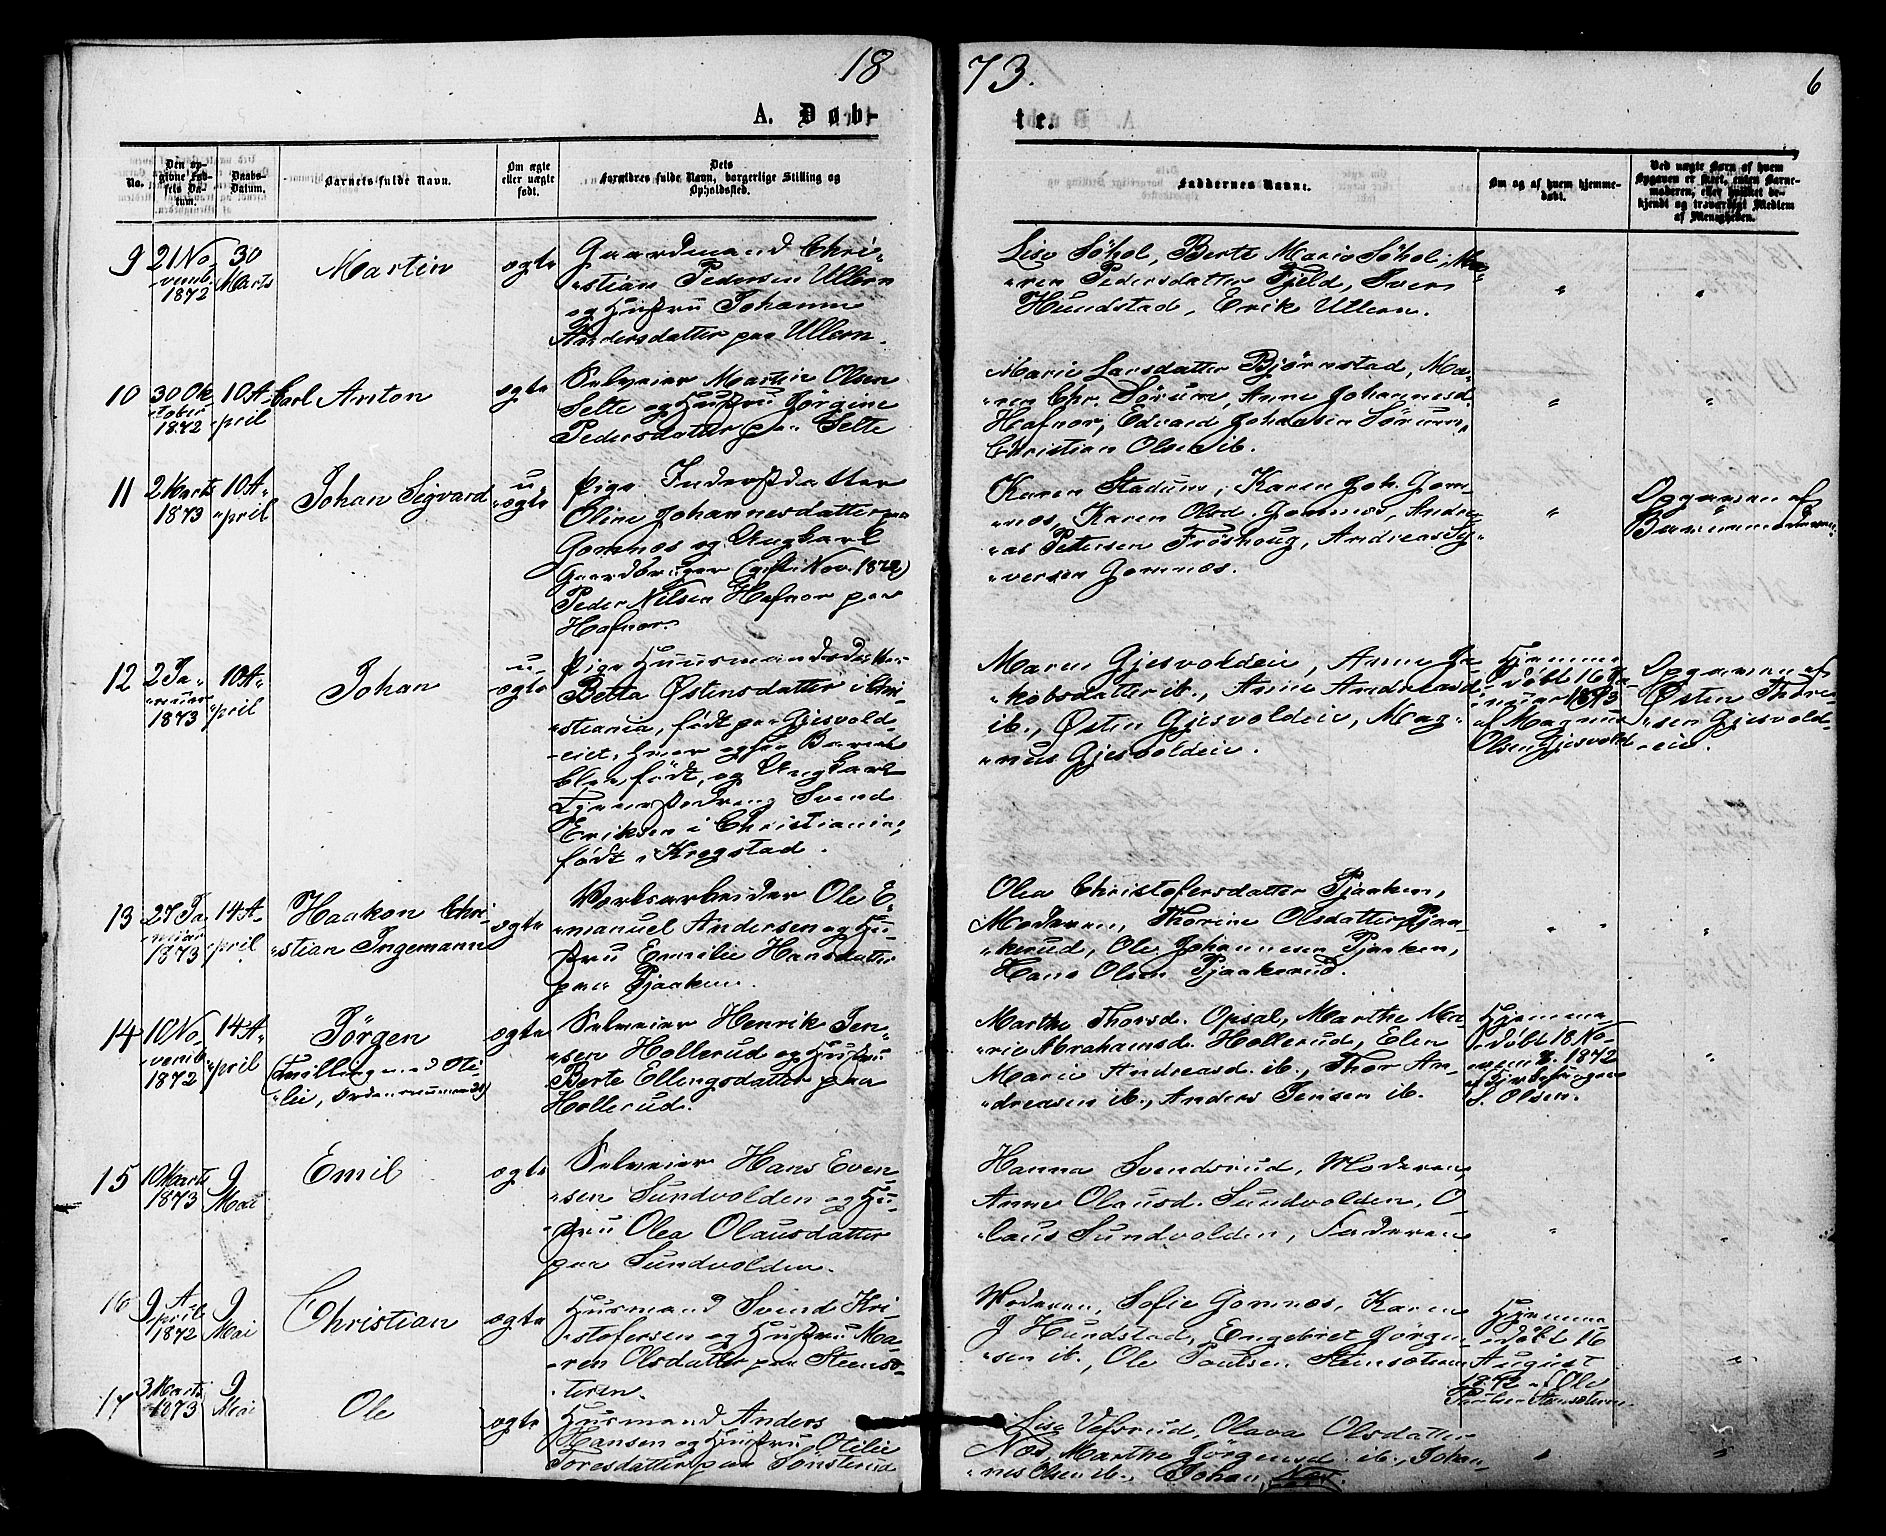 1873.
6
A. Døb-
te.
No.
Den op-
givne Fød-
sels Da-
tum.
Daabs-
Datum.
Barnets fulde Navn.
Om ægte
eller uægte
født.
Dets
Forældres fulde Navn, borgerlige Stilling og
Opholdssted.
Faddernes Navne.
Om og af hvem hjemme-
døbt.
Ved uægte Børn af hvem
Opgaven er skeet, enten Barne-
moderen, eller hvilket be-
kjendt og troværdigt Medlem
af Menigheden.
9
21 No-
vemb.
1872
30
Marts
Martin
ægte
Gaardmand Chri-
stian Pedersen Ullern
og Hustru Johanne
Andersdatter paa Ullern.
Lise Søhol, Berte Marie Søhol, Ma-
ren Pedersdatter Fjeld, Iver
Hundstad, Erik Ullern.
"
"
10
30 Ok-
tober
1872
10 A-
pril
Carl Anton
ægte
Selveier Martin Olsen
Selte og Hustru Jørgine
Pedersdatter paa Selte
Marie Larsdatter Bjørnstad, Ma-
ren Chr. Sørum, Anne Johannesd.
Hafnor, Edvard Johansen Sørum,
Christian Olsen ib.
"
"
11
2 Marts
1873
10 A-
pril
Johan Sigvard
u-
ægte
Pige Inderstdatter
Oline Johannesdatter paa
Gomnæs og Ungkarl
Gaardbruger (gift i Nov. 1872)
Peder Nilsen Hafnor paa
Hafnor.
Karen Stadum, Karen Joh. Gom-
næs, Karen Olsd. Gomnæs, Andre-
as Petersen Frøshoug, Andreas Sy-
versen Gomnæs.
"
Opgaven af
Barnemoderen.
12
2 Ja-
nuar
1873
10 A-
pril
Johan
u-
ægte
Pige Huusmandsdatter
Betta Østensdatter i Chri-
stiania, født paa Gjesvold-
eiet, hvor ogsaa Barnet
blev født, og Ungkarl
Tjenestedreng Svend
Eriksen i Christiania,
født i Krogstad.
Maren Gjesvoldeie, Anne Ja-
kobsdatter ib., Anne Andreasd.
ib., Østen Gjesvoldeie, Mag-
nus Gjesvoldeie.
Hjemme-
døbt 16 Ja-
nuar 1873
af Magnus
Olsen Gjesvold
Opgaven af
Østen Thore-
sen Gjesvold-
eie.
13
27 Ja-
nuar
1873
14 A-
pril
Haakon Chri-
stian Ingemann
ægte
Verksarbeider Ole E-
manuel Andersen og Hu-
stru Emilie Hansdatter
paa Pjaaken.
Olea Christofersdatter Pjaaken,
Moderen, Thorine Olsdatter Pjaa-
kerud, Ole Johannesen Pjaaken,
Hans Olsen Pjaakerud.
" "
"
14
10 No-
vemb.
1872
14 A-
pril
Jørgen
(Tvilling med Oti-
lie,
ægte
Selveier Henrik Jen-
sen Hollerud og Hustru
Berte Ellingsdatter paa
Hollerud.
Marthe Thorsd. Opsal, Marthe Ma-
rie Abrahamsd. Hollerud, Elen
Marie Andreasd. ib., Thor An-
dreasen ib., Anders Jensen ib.
Hjemme-
døbt 18 No-
vemb. 1872
af Kirkesanger
S. Olsen.
"
15
10 Marts
1873
9
Mai
Emil
ægte
Selveier Hans Even-
sen Sundvolden og Hu-
stru Olea Olausdatter
paa Sundvolden.
Hanna Svendsrud, Moderen,
Anne Olausd. Sundvolden, O-
laus Sundvolden, Faderen
"
"
16
9 A-
pril
1872
9
Mai
Christian
ægte
Husmand Svend Kri-
stofersen og Hustru Ma-
ren Olsdatter paa Steensæ-
teren.
Moderen, Sofie Gomnæs, Karen
J Hundstad, Engebret Jørgen-
sen ib., Ole Paulsen Stensæteren
Hjemme-
døbt 16
August
1872 af Ole
Paulsen Stensæteren.
"
17
3 Marts
1873
9
Mai
Ole
ægte
Husmand Anders
Hansen og Hustru Otilie
Toresdatter paa Tønsterud
Lise Vefsrud, Olava Olsdatter
Næs, Marthe Jørgensd. ib., Johan-
nes Olsen ib., Johan Næs.
"
"